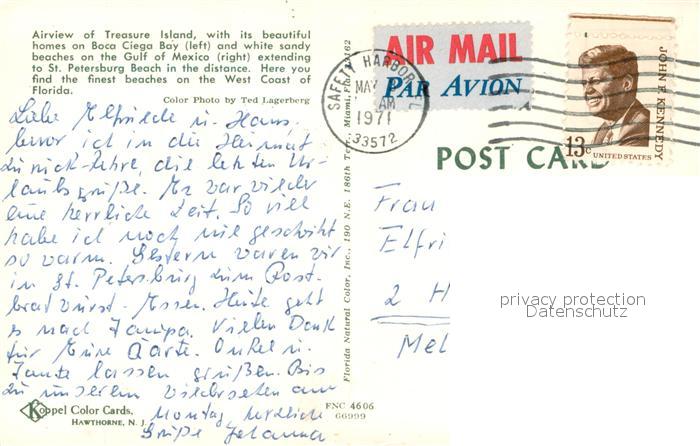 Airview of Treasure Island, with its beautiful
homes on Boca Ciega Bay (left) and white sandy
beaches on the Gulf of Mexico (right) extending
to St. Petersburg Beach in the distance. Here you
find the finest beaches on the West Coast of
Florida.
Color Photo by Ted Lagerberg
Liebe Elfriede u. Hans,
bevor ich in die Heimat
zurück-kehre, die letzten Ur-
laubsgrüße. Es war wieder
eine herrliche Zeit. So viel
habe ich noch nie geschwitzt
so warm. Gestern waren wir
in St. Petersburg zum Rost-
bratwurst-Essen. Heute geht
es nach Tampa. Vielen Dank
für Eure Karte. Onkel u.
Tante lassen grüßen. Bis
zu unserem Wiedersehen am
Montag herzliche
Grüße Johanna
Koppel Color Cards.
HAWTHORNE, N. J.
FNC 4606
66999
Florida Natural Color, Inc., 190 N.E. 186th Terr., Miami, Fla. 33162
SAFETY HARBOR, FL
MAY
AM
1971
33572
AIR MAIL
PAR AVION
JOHN F. KENNEDY
13c
UNITED STATES
POST CARD
Frau
Elfri
2 H
Mel
privacy protection
Datenschutz